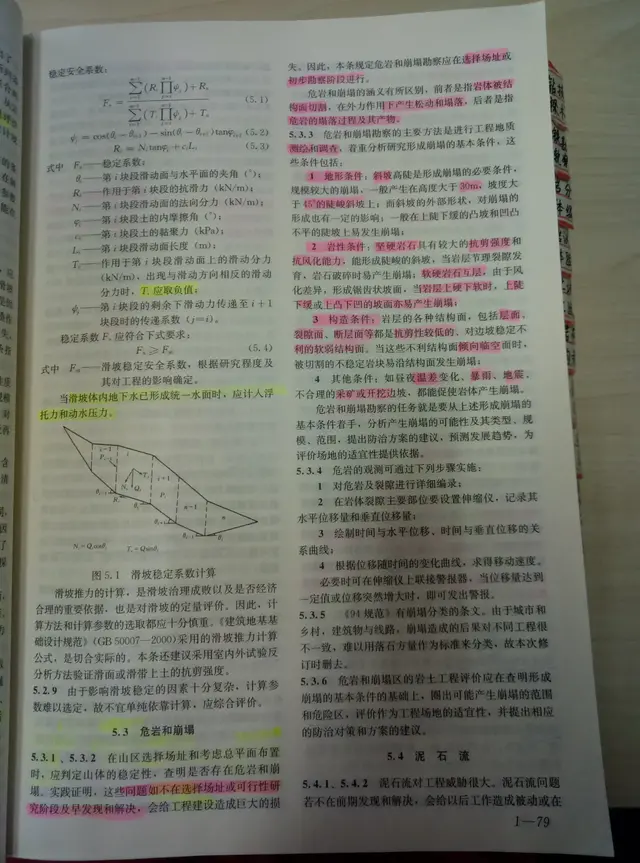 稳定安全系数：
Fs = (∑(Ri∏ψj)+Rn) / (∑(Ti∏ψj)+Tn) (5.1)
ψj = cos(θi－θi+1)－sin(θi－θi+1)tanφi+1 (5.2)
Ri = Nitanφi+ciLi (5.3)
式中 Fs——稳定系数；
θi——第 i 块段滑动面与水平面的夹角（°）；
Ri——作用于第 i 块段的抗滑力（kN/m）；
Ni——第 i 块段滑动面的法向分力（kN/m）；
φi——第 i 块段土的内摩擦角（°）；
ci——第 i 块段土的黏聚力（kPa）；
Li——第 i 块段滑动面长度（m）；
Ti——作用于第 i 块段滑动面上的滑动分力
（kN/m），出现与滑动方向相反的滑动
分力时，Ti 应取负值；
ψj——第 i 块段的剩余下滑动力传递至 i＋1
块段时的传递系数（j=i）。
稳定系数 Fs 应符合下式要求：
Fs ≥ Fst (5.4)
式中 Fst——滑坡稳定安全系数，根据研究程度及
其对工程的影响确定。
当滑坡体内地下水已形成统一水面时，应计入浮
托力和动水压力。
i－1
i
i＋1
n－1
n
Ni=Qicosθi Ti=Qisinθi
图 5.1 滑坡稳定系数计算
滑坡推力的计算，是滑坡治理成败以及是否经济
合理的重要依据，也是对滑坡的定量评价。因此，计
算方法和计算参数的选取都应十分慎重。《建筑地基基
础设计规范》（GB 50007—2000）采用的滑坡推力计算
公式，是切合实际的。本条还建议采用室内外试验反
分析方法验证滑面或滑带上土的抗剪强度。
5.2.9 由于影响滑坡稳定的因素十分复杂，计算参
数难以选定，故不宜单纯依靠计算，应综合评价。
5.3 危岩和崩塌
5.3.1、5.3.2 在山区选择场址和考虑总平面布置
时，应判定山体的稳定性，查明是否存在危岩和崩
塌。实践证明，这些问题如不在选择场址或可行性研
究阶段及早发现和解决，会给工程建设造成巨大的损
失。因此，本条规定危岩和崩塌勘察应在选择场址或
初步勘察阶段进行。
危岩和崩塌的涵义有所区别，前者是指岩体被结
构面切割，在外力作用下产生松动和塌落，后者是指
危岩的塌落过程及其产物。
5.3.3 危岩和崩塌勘察的主要方法是进行工程地质
测绘和调查，着重分析研究形成崩塌的基本条件，这
些条件包括：
1 地形条件：斜坡高陡是形成崩塌的必要条件，
规模较大的崩塌，一般产生在高度大于 30m，坡度大
于 45°的陡峻斜坡上；而斜坡的外部形状，对崩塌的
形成也有一定的影响；一般在上陡下缓的凸坡和凹凸
不平的陡坡上易发生崩塌；
2 岩性条件：坚硬岩石具有较大的抗剪强度和
抗风化能力，能形成陡峻的斜坡，当岩层节理裂隙发
育，岩石破碎时易产生崩塌；软硬岩石互层，由于风
化差异，形成锯齿状坡面，当岩层上硬下软时，上陡
下缓或上凸下凹的坡面亦易产生崩塌；
3 构造条件：岩层的各种结构面，包括层面、
裂隙面、断层面等都是抗剪性较低的、对边坡稳定不
利的软弱结构面。当这些不利结构面倾向临空面时，
被切割的不稳定岩块易沿结构面发生崩塌；
4 其他条件：如昼夜温差变化、暴雨、地震、
不合理的采矿或开挖边坡，都能促使岩体产生崩塌。
危岩和崩塌勘察的任务就是要从上述形成崩塌的
基本条件着手，分析产生崩塌的可能性及其类型、规
模、范围，提出防治方案的建议，预测发展趋势，为
评价场地的适宜性提供依据。
5.3.4 危岩的观测可通过下列步骤实施：
1 对危岩及裂隙进行详细编录；
2 在岩体裂隙主要部位要设置伸缩仪，记录其
水平位移量和垂直位移量；
3 绘制时间与水平位移、时间与垂直位移的关
系曲线；
4 根据位移随时间的变化曲线，求得移动速度。
必要时可在伸缩仪上联接警报器，当位移量达到
一定值或位移突然增大时，即可发出警报。
5.3.5 《94 规范》有崩塌分类的条文。由于城市和
乡村，建筑物与线路，崩塌造成的后果对不同工程很
不一致，难以用落石方量作为标准来分类，故本次修
订时删去。
5.3.6 危岩和崩塌区的岩土工程评价应在查明形成
崩塌的基本条件的基础上，圈出可能产生崩塌的范围
和危险区，评价作为工程场地的适宜性，并提出相应
的防治对策和方案的建议。
5.4 泥石流
5.4.1、5.4.2 泥石流对工程威胁很大。泥石流问题
若不在前期发现和解决，会给以后工作造成被动或在
1—79